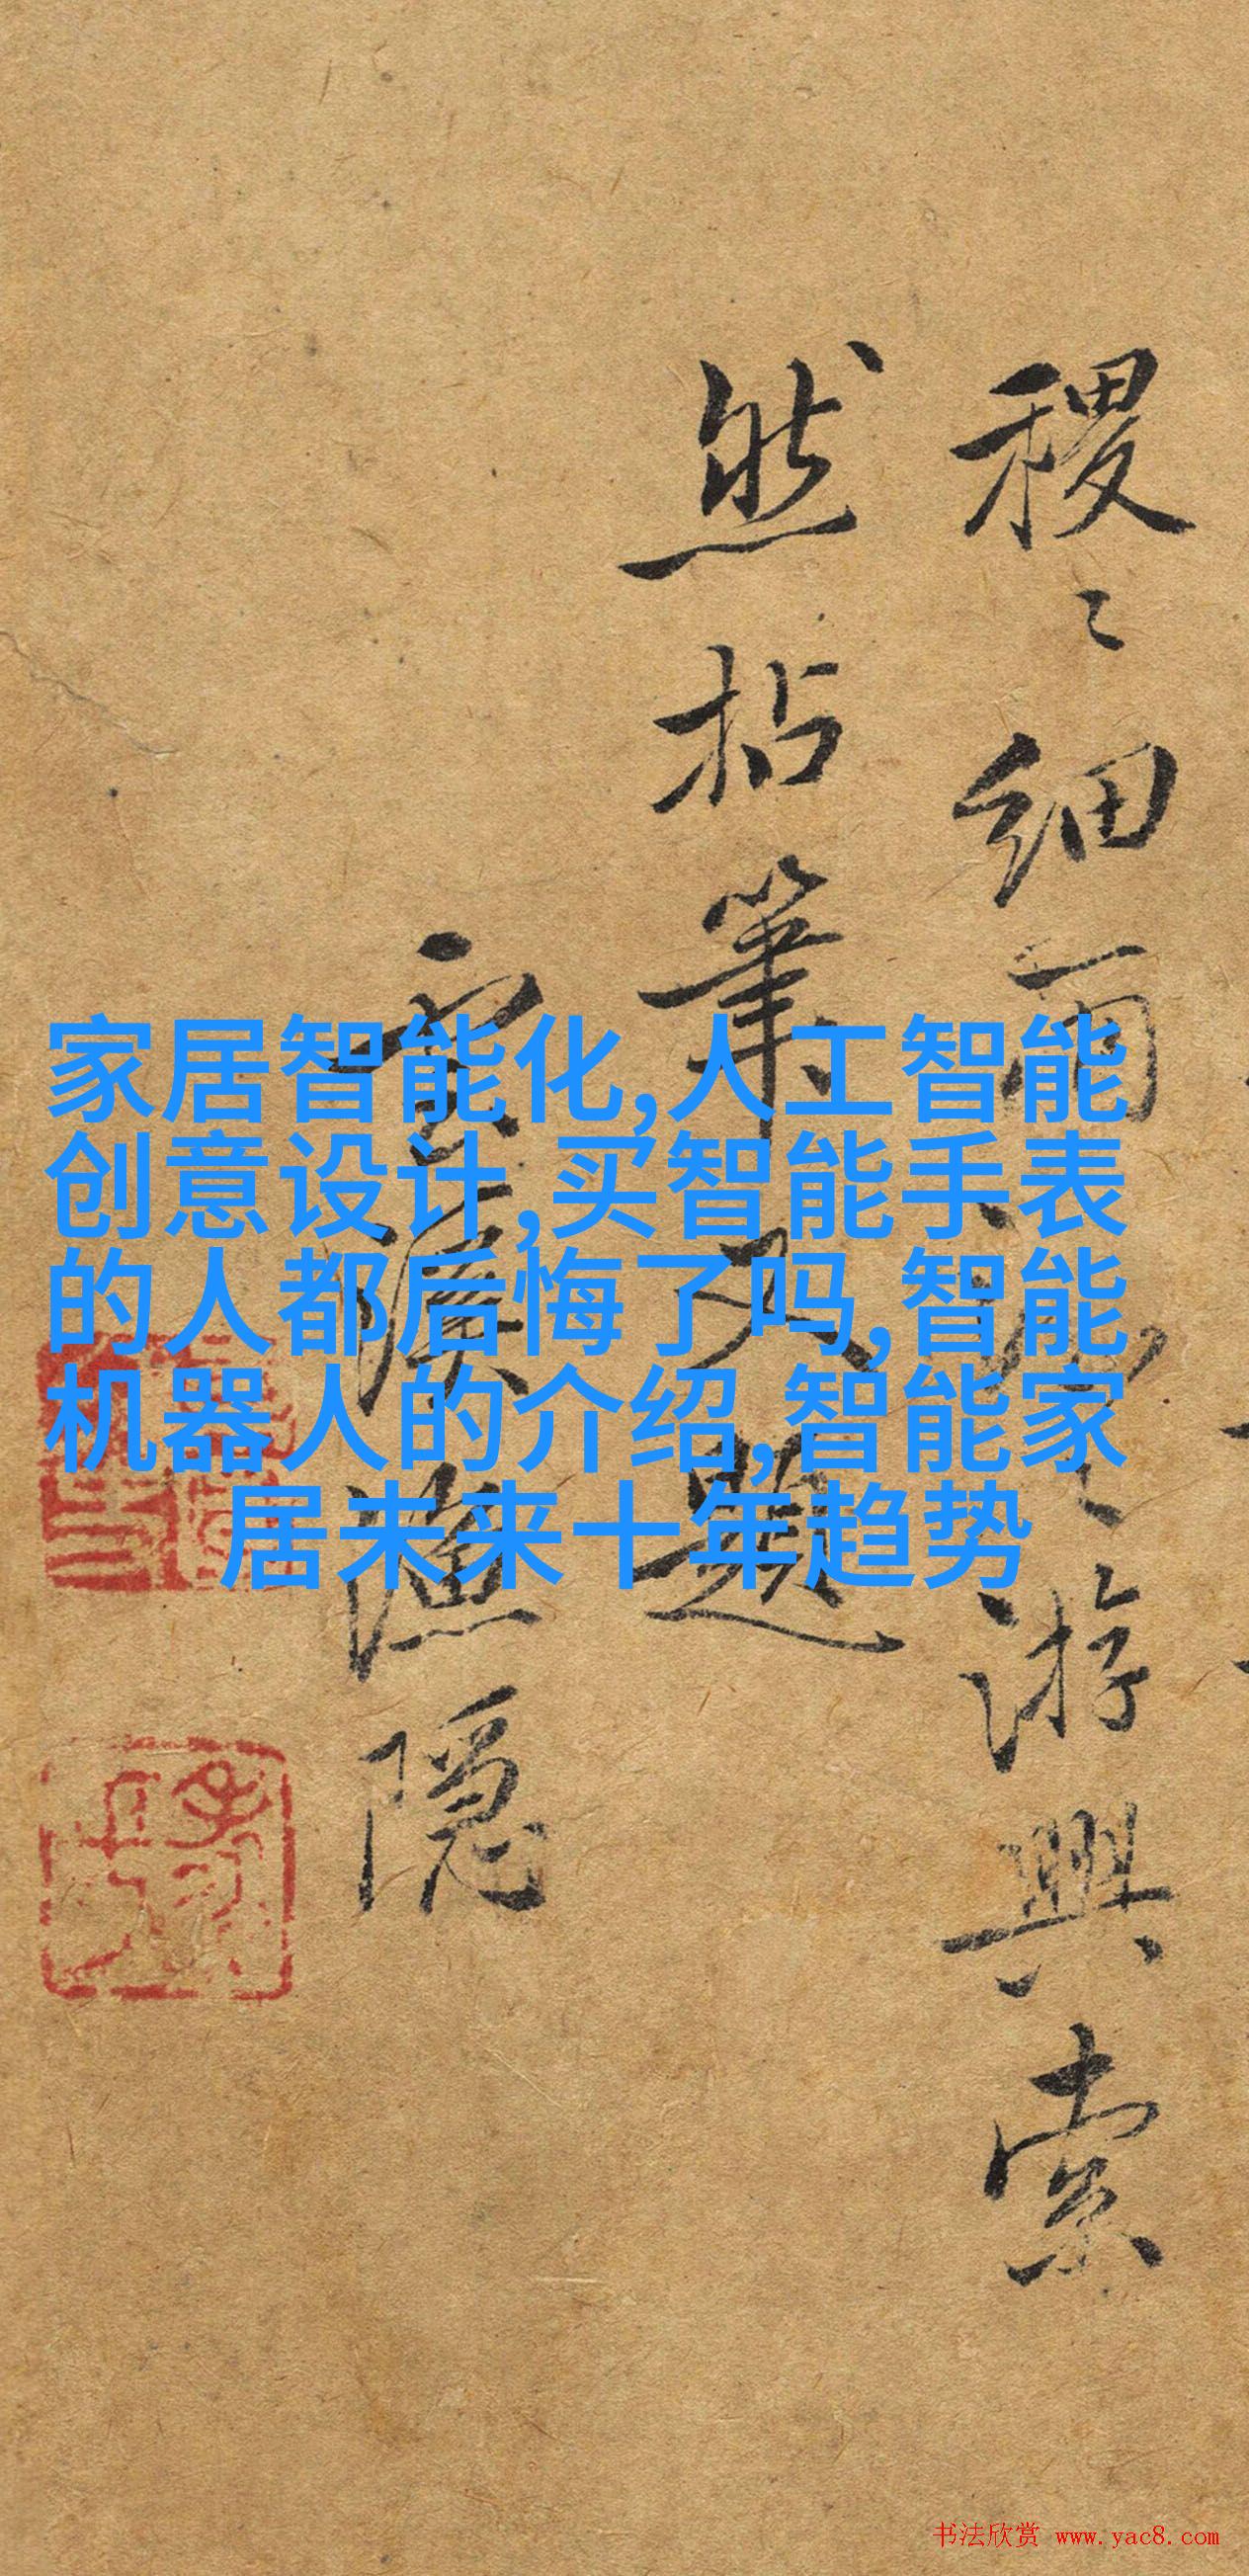 稷〻細雨〻游興索
然拈筆又題
雲溪漁隱
家居智能化,人工智能
创意设计,买智能手表
的人都后悔了吗,智能
机器人的介绍,智能家
居未来十年趋势
书法欣赏 www.yac8.com